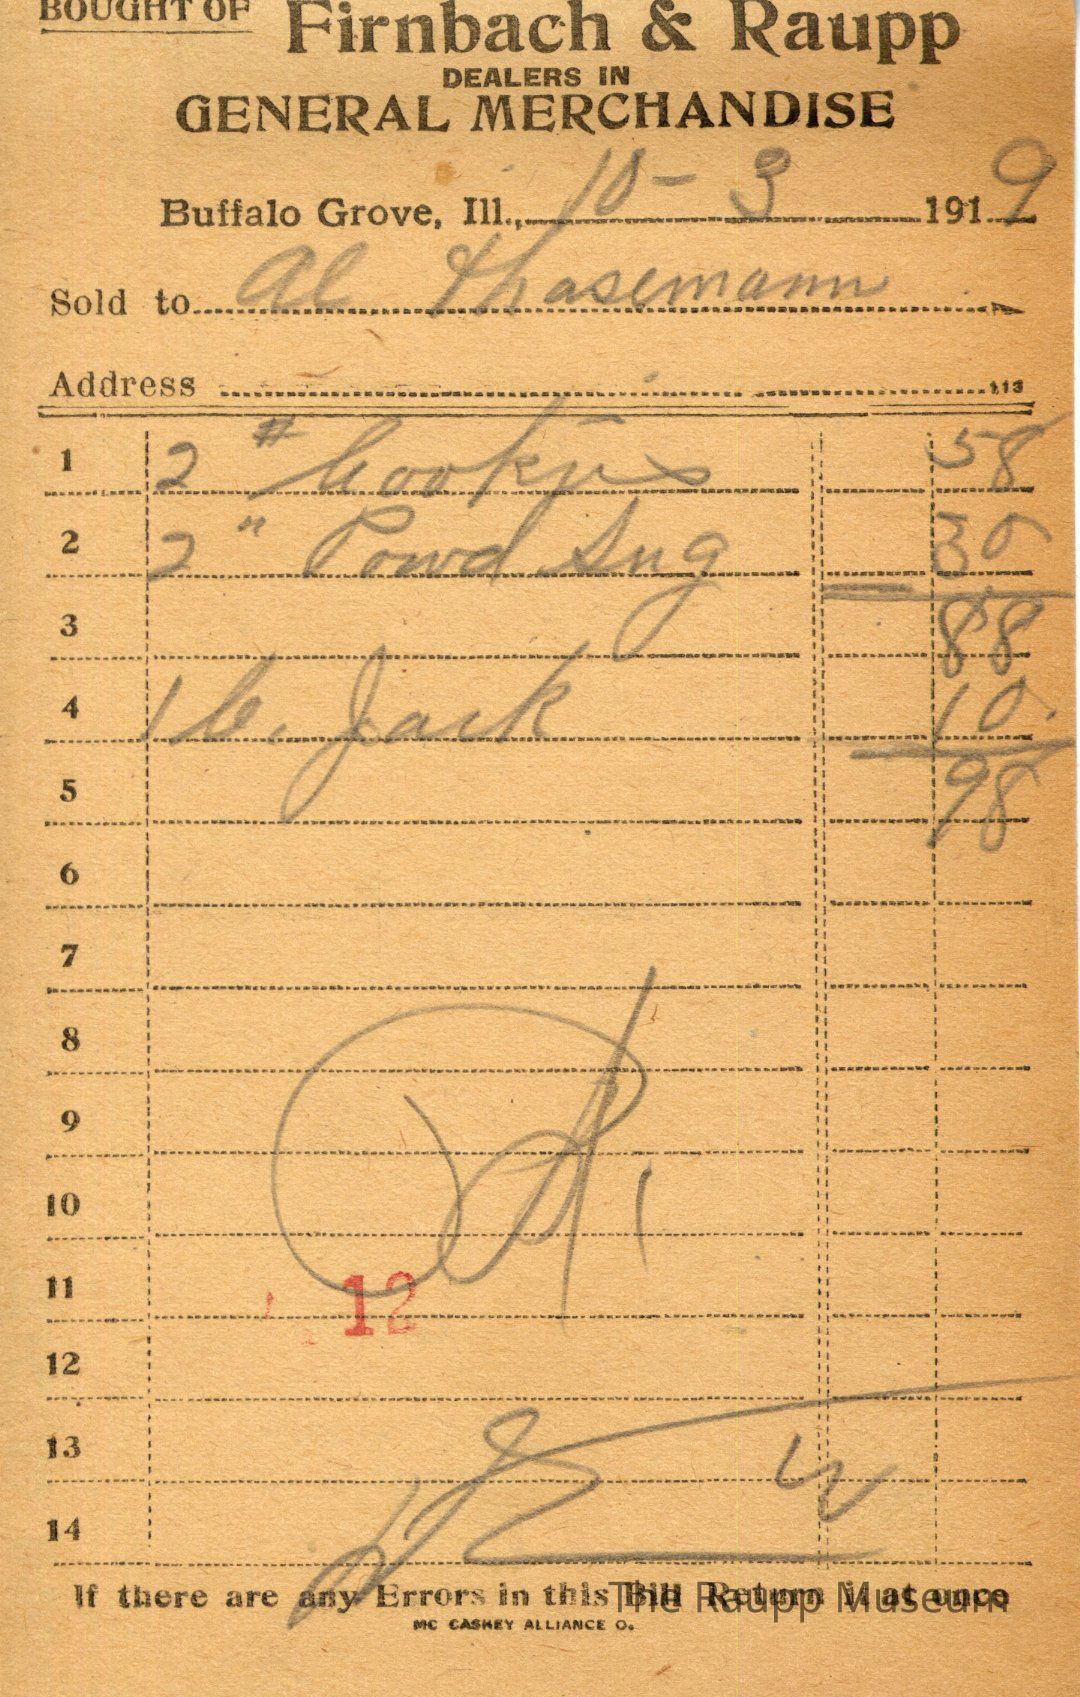 BOUGHT OF Firnbach & Raupp
DEALERS IN
GENERAL MERCHANDISE
Buffalo Grove, Ill., 10 - 3 1919
Sold to Al Thasemann
Address 113
1 2 # Cookys 58
2 2 " Powd Sug 30
3 88
4 1 C. Jack 10
5 98
6
7
8
9
10
11 12
12
13
14
If there are any Errors in this Bill Return it at once
The Raupp Museum
MC CASKEY ALLIANCE O.